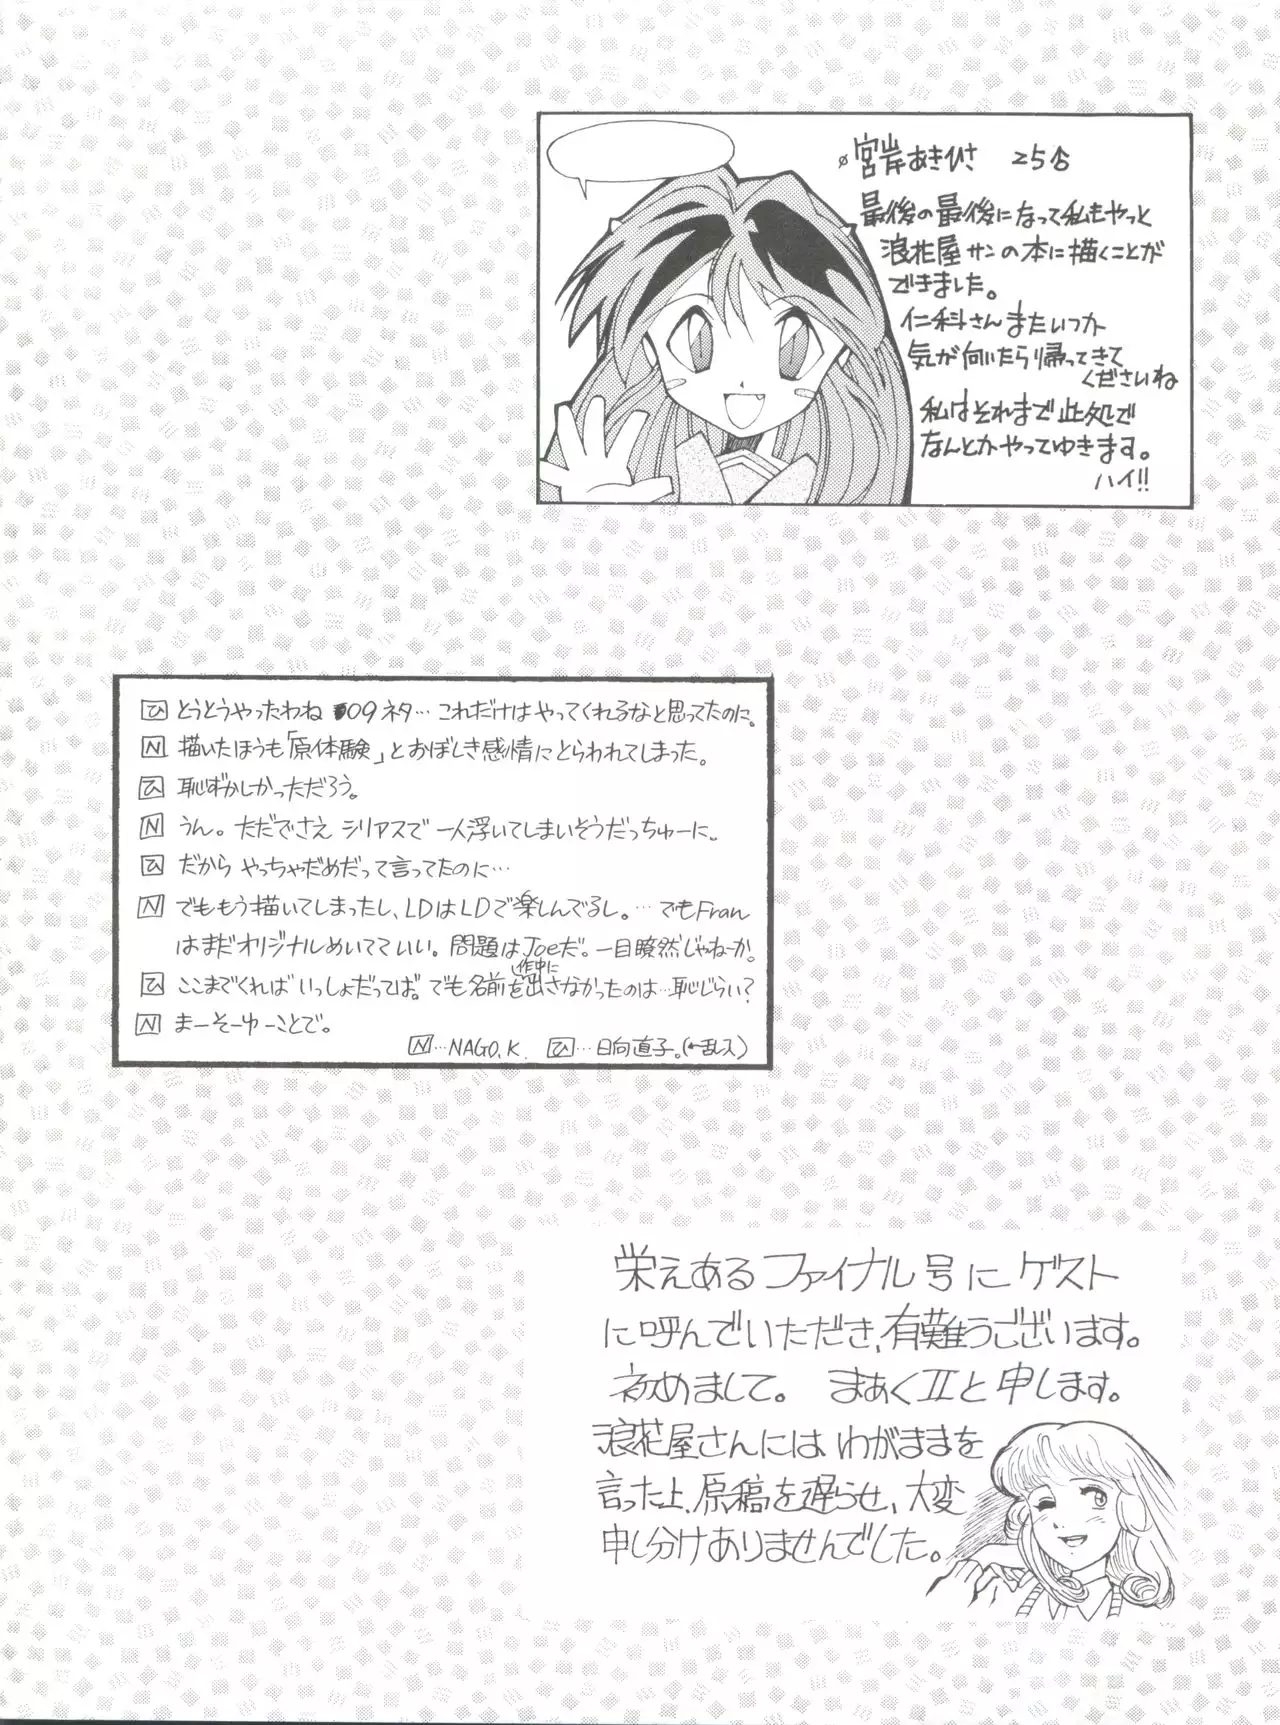 宮岸あきひさ 25才
最後の最後になって私もやっと
浪花屋サンの本に描くことが
できました。
仁科さんまたいつか
気が向いたら帰ってきて
くださいね
私はそれまで此処で
なんとかやってゆきます。
ハイ!!
ひ とうとうやったわね 009ネタ… これだけはやってくれるなと思ってたのに。
N 描いたほうも「原体験」とおぼしき感情にとらわれてしまった。
ひ 恥ずかしかっただろう。
N うん。ただでさえ シリアスで 一人浮いてしまいそうだっちゅーに。
ひ だから やっちゃだめだって言ってたのに…
N でももう描いてしまったし、LDはLDで楽しんでるし。…でもFran
はまだオリジナルめいてていい。問題はJoeだ。一目瞭然じゃねーか。
ひ ここまでくれば いっしょだってば。でも名前を作中に出さなかったのは…恥じらい?
N まーそーゆーことで。
N…NAGO.K. ひ…日向直子。(←乱入)
栄えあるファイナル号にゲスト
に呼んでいただき、有難うございます。
初めまして。 まぁくⅡと申します。
浪花屋さんにはわがままを
言った上、原稿を遅らせ、大変
申し分けありませんでした。